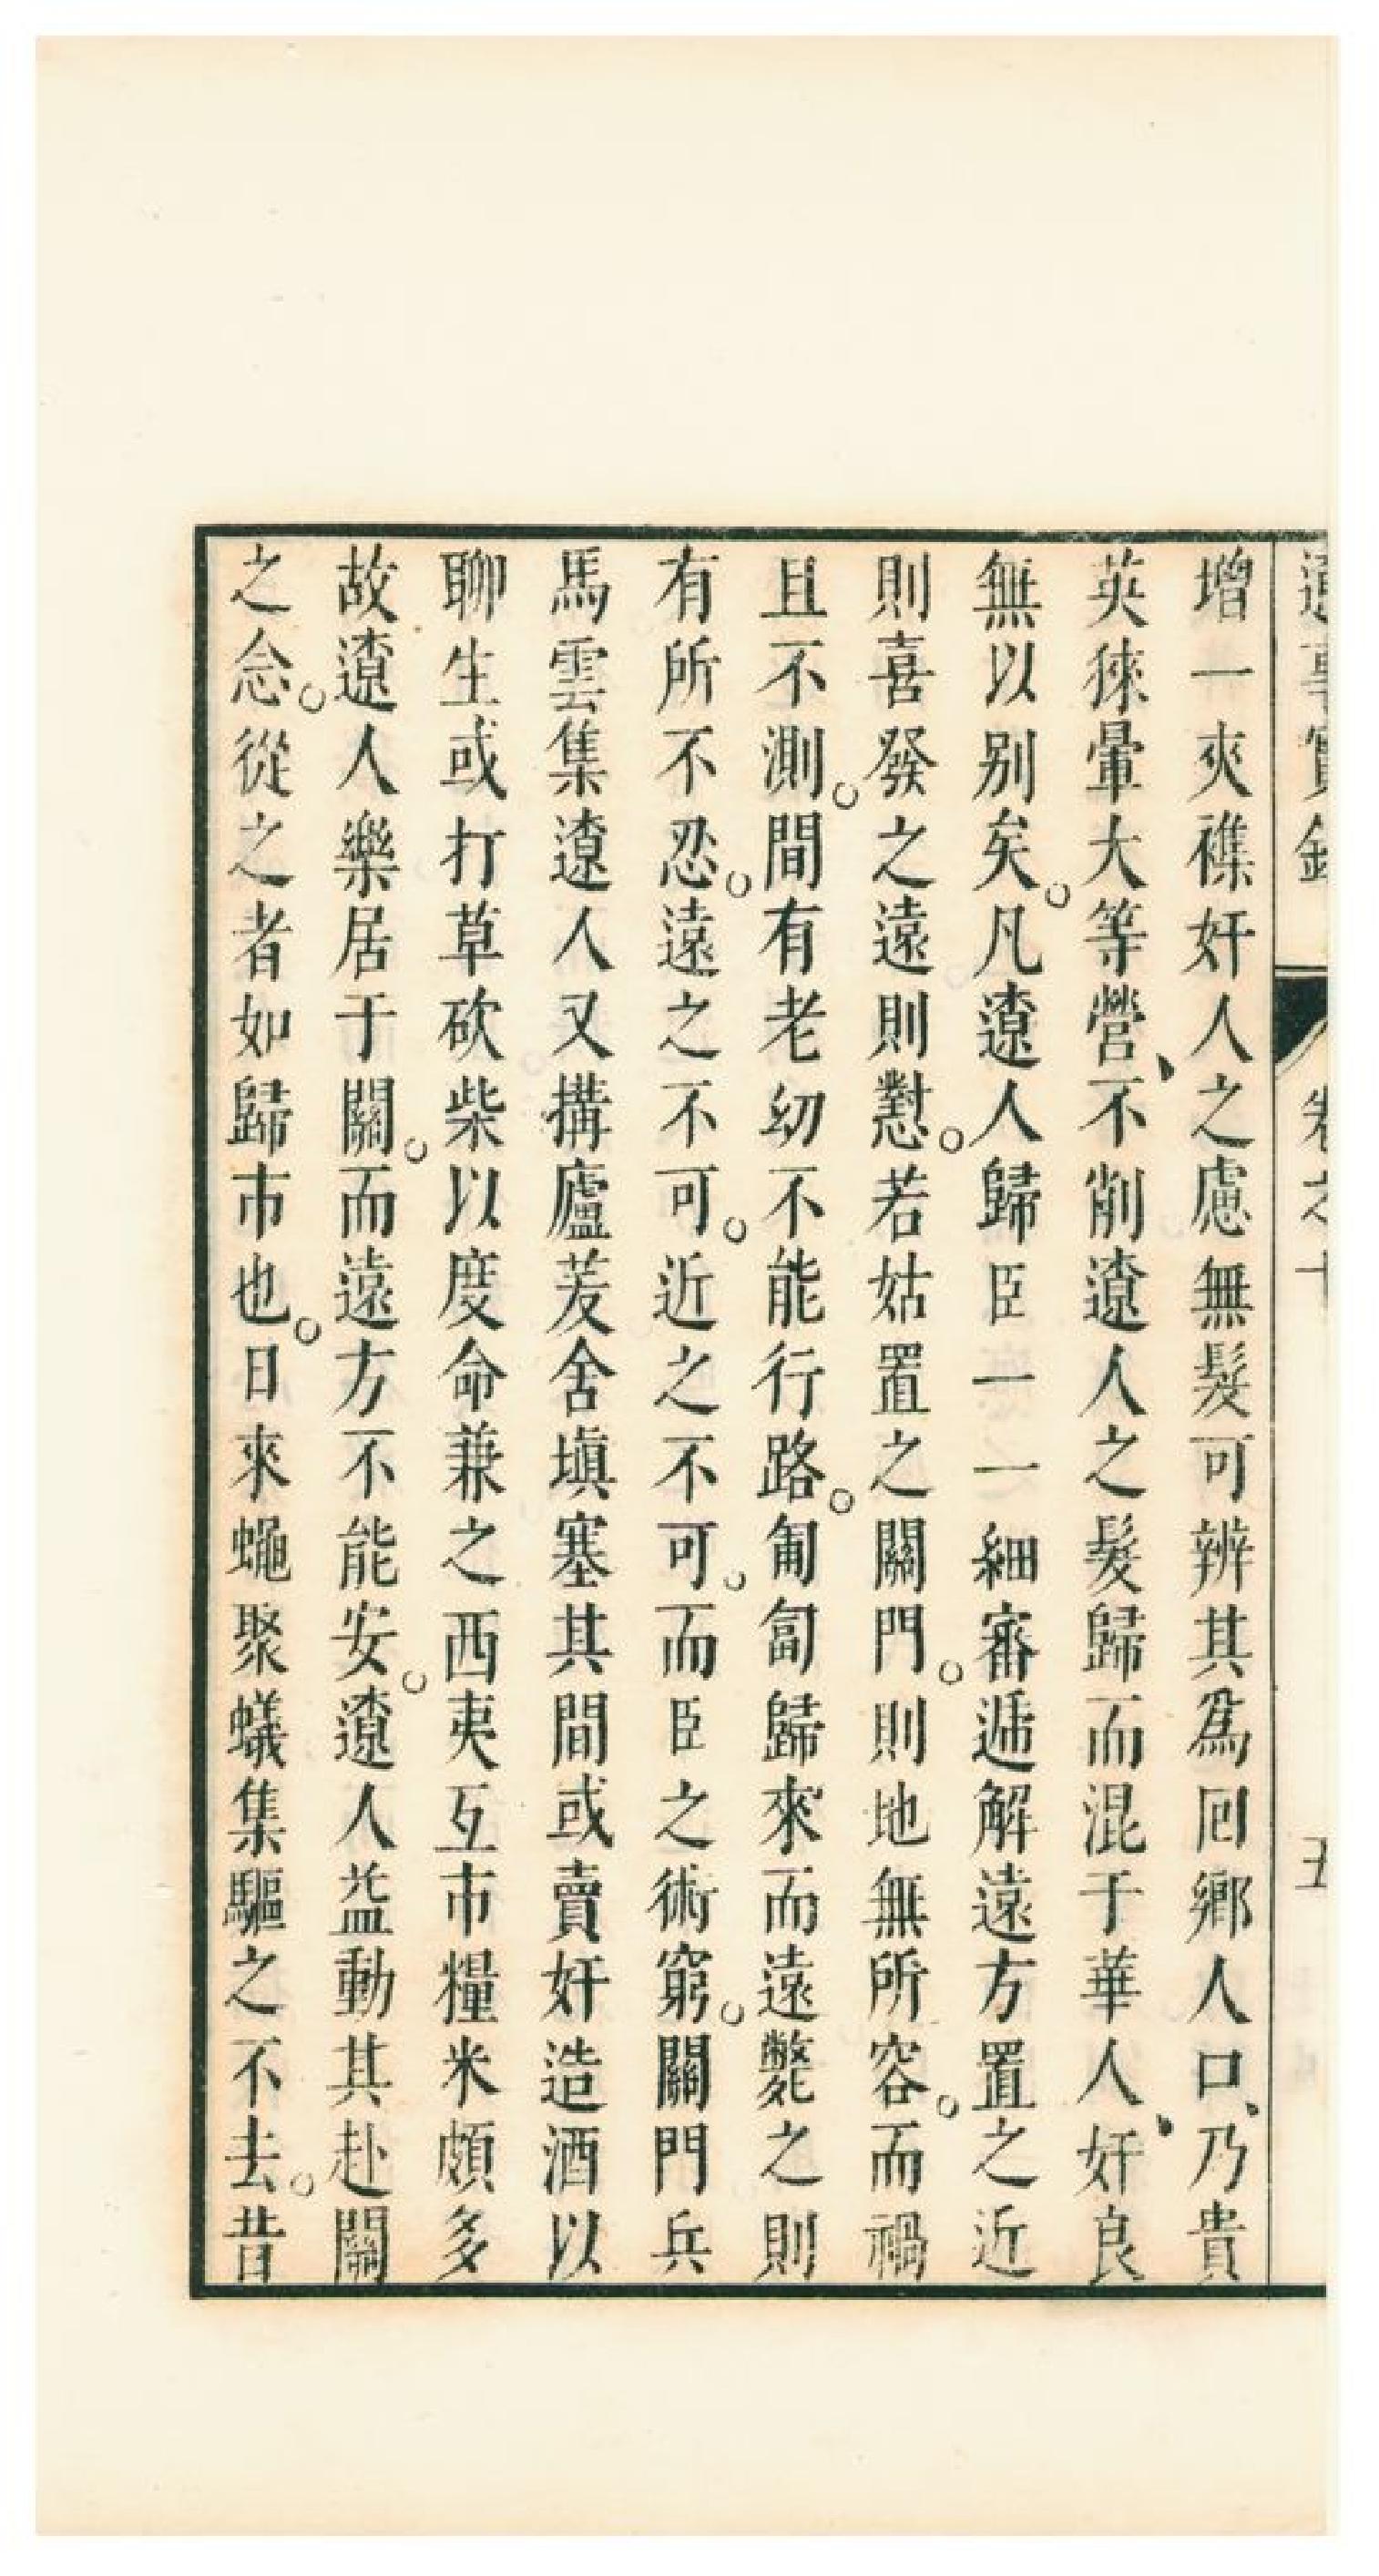 增一夾襍奸人之慮無髮可辨其爲囘鄉人口、乃貴
英猍暈大等營、不削遼人之髮歸而混于華人、奸良
無以别矣。凡遼人歸臣一一細審遞解遠方置之近
則喜發之遠則懟。若姑置之關門。則地無所容。而禍
且不測。間有老幼不能行路。匍匐歸來而遠斃之則
有所不忍。遠之不可。近之不可。而臣之術窮。關門兵
馬雲集遼人又搆廬茇舍塡塞其間或賣奸造酒以
聊生或打草砍柴以度命兼之西夷互市糧米頗多
故遼人樂居于關。而遠方不能安。遼人益動其赴關
之念。從之者如歸市也。日來蠅聚蟻集驅之不去。昔